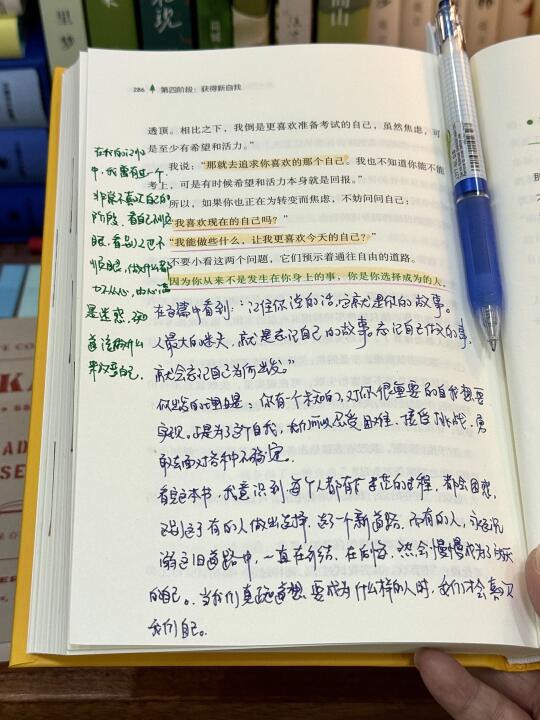 286 第四阶段：获得新自我
透顶。相比之下，我倒是更喜欢准备考试的自己，虽然焦虑，可
是至少有希望和活力。”
我说：“那就去追求你喜欢的那个自己。我也不知道你能不能
考上，可是有时候希望和活力本身就是回报。”
所以，如果你也正在为转变而焦虑，不妨问问自己：
“我喜欢现在的自己吗？”
“我能做些什么，让我更喜欢今天的自己？”
不要小看这两个问题，它们预示着通往自由的道路。
因为你从来不是发生在你身上的事，你是你选择成为的人。
在我的记忆
中，我曾有过一个
非常不喜欢自己的
阶段，看自己不顺
眼，看别人也不
顺眼，做什么都
力不从心，内心满
是迷惑，不知
道该做什么
来改变自己。
在书中看到：“记住你说的话，它就是你的故事。
人最大的迷失，就是忘记自己的故事。忘记自己作文的事，
就会忘记自己为何出发。”
你出发的理由是：你有一个未知的，对你很重要的自我想要
实现。正是为了这个自我，我们可以忍受困难、接受挑战、勇
敢去面对各种不确定。
看完这本书，我意识到每个人都有
的过程，都会困惑，
有的人做出选择，
了一个新道路，而有的人，永远沉
溺于旧道路中，一直在纠结、在后悔，
慢慢成为了
的自己。当我们真正
要成为什么样的人时，我们才会喜欢
我们自己。